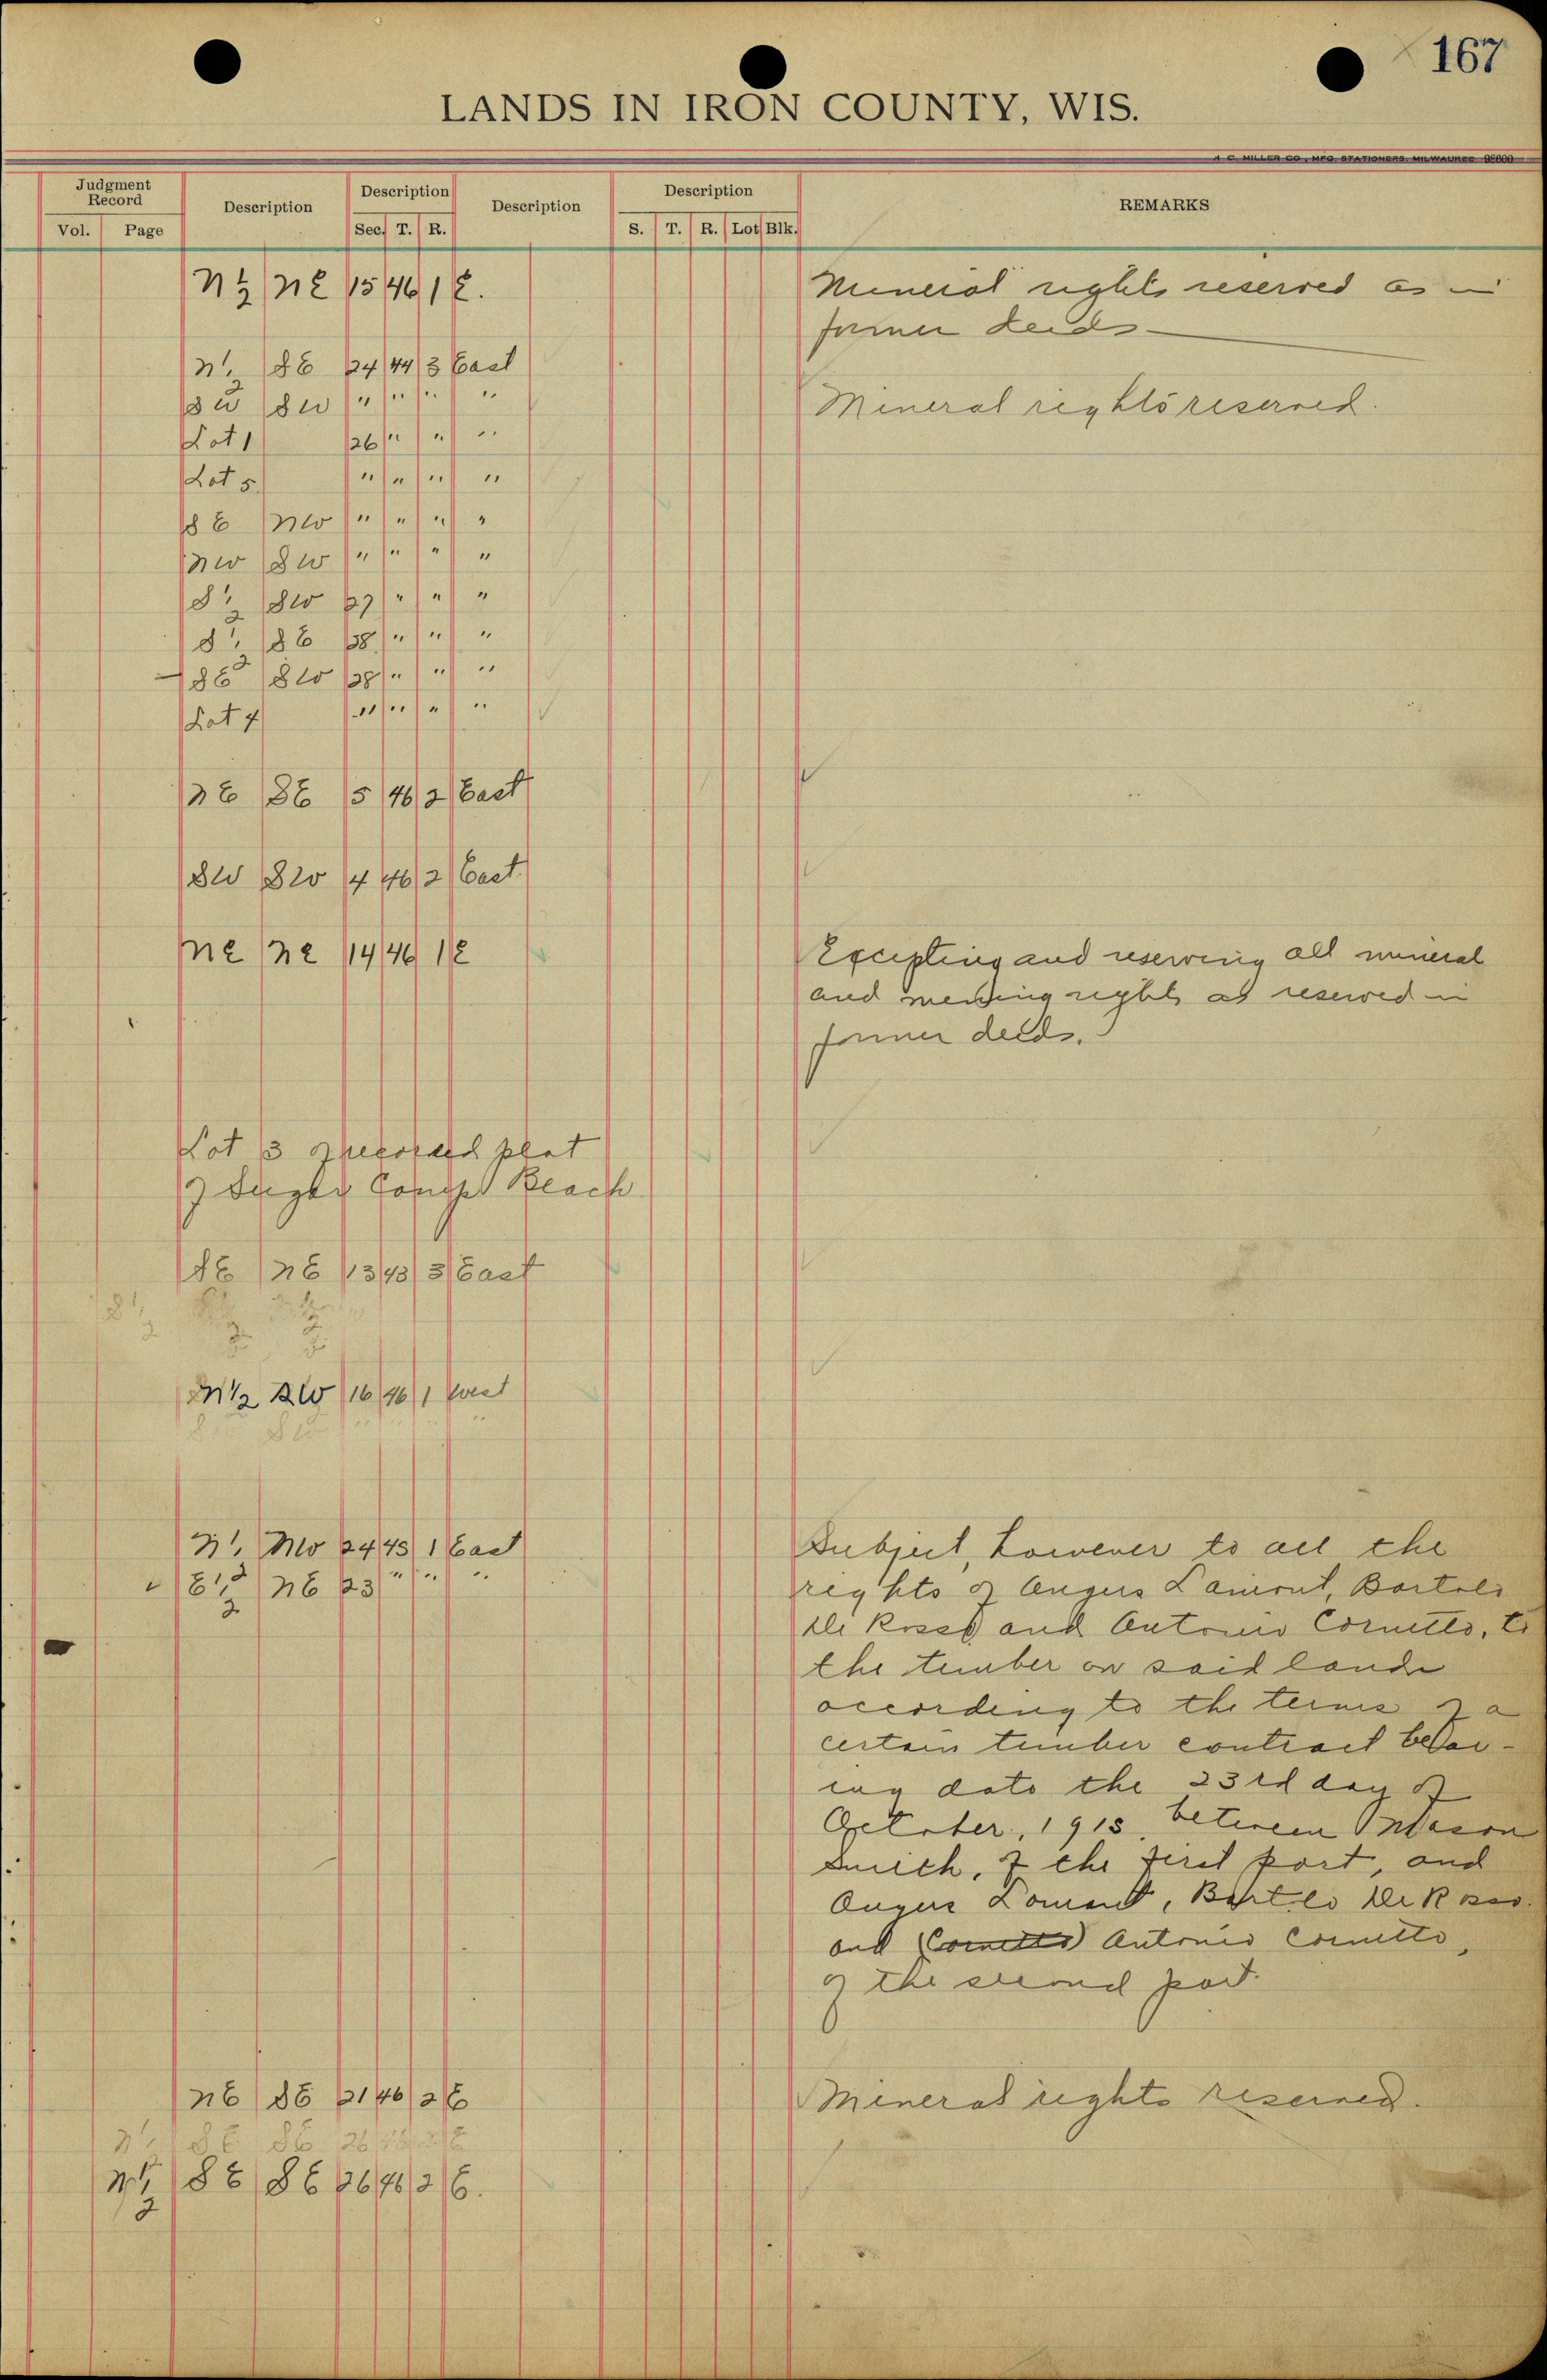 167
LANDS IN IRON COUNTY, WIS.
H. C. MILLER CO., MFG. STATIONERS, MILWAUKEE 98000
Judgment Record
Description
Description
Description
Description
REMARKS
Vol. Page
Sec. T. R.
S. T. R. Lot Blk.
N½ NE 15 46 1 E.
Mineral rights reserved as in
former deeds
N½ SE 24 44 3 East
SW SW " " " "
Mineral rights reserved.
Lot 1 26 " " "
Lot 5 " " " "
SE NW " " " "
NW SW " " " "
S½ SW 27 " " "
S½ SE 28 " " "
SE SW 28 " " "
Lot 4 " " " "
NE SE 5 46 2 East
SW SW 4 46 2 East
NE NE 14 46 1 E
Excepting and reserving all mineral
and mining rights as reserved in
former deeds.
Lot 3 of recorded plat
of Sugar Beach
SE NE 13 43 3 East
S½
N½ SW 16 46 1 West
N½ NW 24 45 1 East
E½ NE 23 " " "
Subject, however to all the
rights of Angus Lamont, Bartolo
De Rosso and Antonio Cornetto, to
the timber on said lands
according to the terms of a
certain timber contract bear-
ing date the 23rd day of
October, 1913, between
Smith, of the first part, and
Angus Lamont, Bartlo De Rosso
and (Cornetto) Antonio Cornetto,
of the second part.
NE SE 21 46 2 E
Mineral rights reserved.
N½ SE SE 26 46 2 E
N½ SE SE 26 46 2 E.